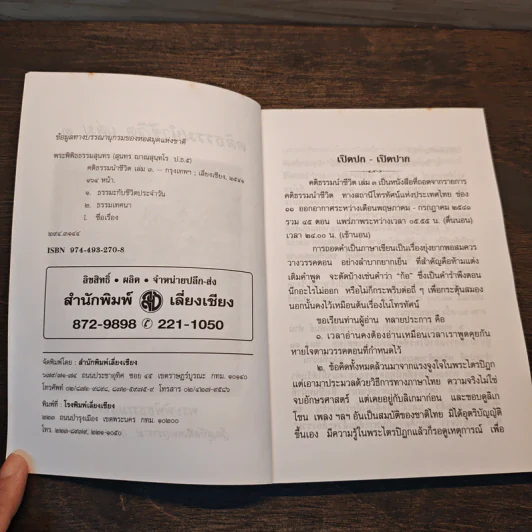 ข้อมูลทางบรรณานุกรมของหอสมุดแห่งชาติ
พระพิพิธธรรมสุนทร (สุนทร ญาณสุนฺทโร ป.ธ.๕)
คติธรรมนำชีวิต เล่ม ๓. -- กรุงเทพฯ : เลี่ยงเชียง, ๒๕๔๒
๑๖๔ หน้า.
๑. ธรรมะกับชีวิตประจำวัน
๒. ธรรมเทศนา
I. ชื่อเรื่อง
๒๙๔.๓๑๔๔
ISBN 974-493-270-8
ลิขสิทธิ์ • ผลิต • จำหน่ายปลีก-ส่ง
สำนักพิมพ์ เลี่ยงเชียง
872-9898 ✆ 221-1050
จัดพิมพ์โดย : สำนักพิมพ์เลี่ยงเชียง
ถนนประชาอุทิศ ซอย ๔๕ เขตราษฎร์บูรณะ กทม. ๑๐๑๔๐
พิมพ์ที่ : โรงพิมพ์เลี่ยงเชียง
๒๒๓ ถนนบำรุงเมือง เขตพระนคร กทม. ๑๐๒๐๐
โทร. ๒๒๑-๑๐๕๐
เปิดปก - เปิดปาก
คติธรรมนำชีวิต เล่ม ๓ เป็นหนังสือที่ถอดจากรายการ
คติธรรมนำชีวิต ทางสถานีโทรทัศน์แห่งประเทศไทย ช่อง
๑๑ ออกอากาศระหว่างเดือนพฤษภาคม - กรกฎาคม ๒๕๔๑
รวม ๔๕ ตอน แพร่ภาพระหว่างเวลา ๐๕.๕๕ น. (ตื่นนอน)
เวลา ๒๔.๐๐ น. (เข้านอน)
การถอดคำเป็นภาษาเขียนเป็นเรื่องยุ่งยากพอสมควร
วางวรรคตอน อย่างลำบากยากเย็น ที่สำคัญคือห้ามแต่ง
เติมคำพูด จะตัดบ้างเช่นคำว่า "ก้อ" ซึ่งเป็นคำรำพึงตอน
นึกอะไรไม่ออก หรือไม่ก็กระพริบต่อถี่ ๆ เพื่อกระตุ้นสมอง
นอกนั้นคงไว้เหมือนต้นเรื่องในโทรทัศน์
ขอเรียนท่านผู้อ่าน หลายประการ คือ
๑. เวลาอ่านคงต้องอ่านเหมือนเวลาเราพูดคุยกัน
หายใจตามวรรคตอนที่กำหนดไว้
๒. ข้อคิดทั้งหมดล้วนมาจากแรงจูงใจในพระไตรปิฎก
แต่เอามาประมวลด้วยวิธีการทางภาษาไทย ความจริงไม่ใช่
จบอักษรศาสตร์ แต่เคยอยู่กับลิเกมาก่อน และชอบดูลิเก
โขน เพลง ฯลฯ อันเป็นสมบัติของชาติไทย มิได้อุตริบัญญัติ
ขึ้นเอง มีความรู้ในพระไตรปิฎกแล้วก็รอดูเหตุการณ์ เพื่อ